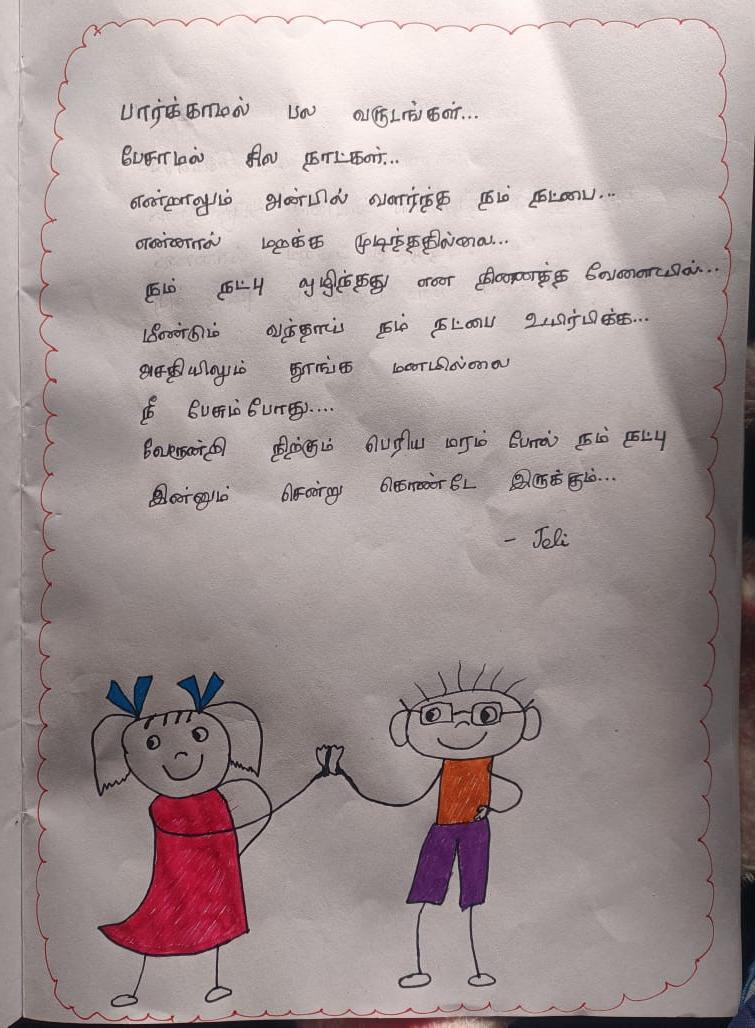 பார்க்காமல் பல வருடங்கள்...
பேசாமல் சில நாட்கள்...
என்றாலும் அன்பில் வளர்ந்த நம் நட்பை...
என்னால் மறக்க முடிந்ததில்லை...
நம் நட்பு அழிந்தது என நினைத்த வேளையில்...
மீண்டும் வந்தாய் நம் நட்பை உயிர்பிக்க...
அசதியிலும் தூங்க மனமில்லை
நீ பேசும்போது....
வேரூன்றி நிற்கும் பெரிய மரம் போல் நம் நட்பு
இன்னும் சென்று கொண்டே இருக்கும்...
- Jeli